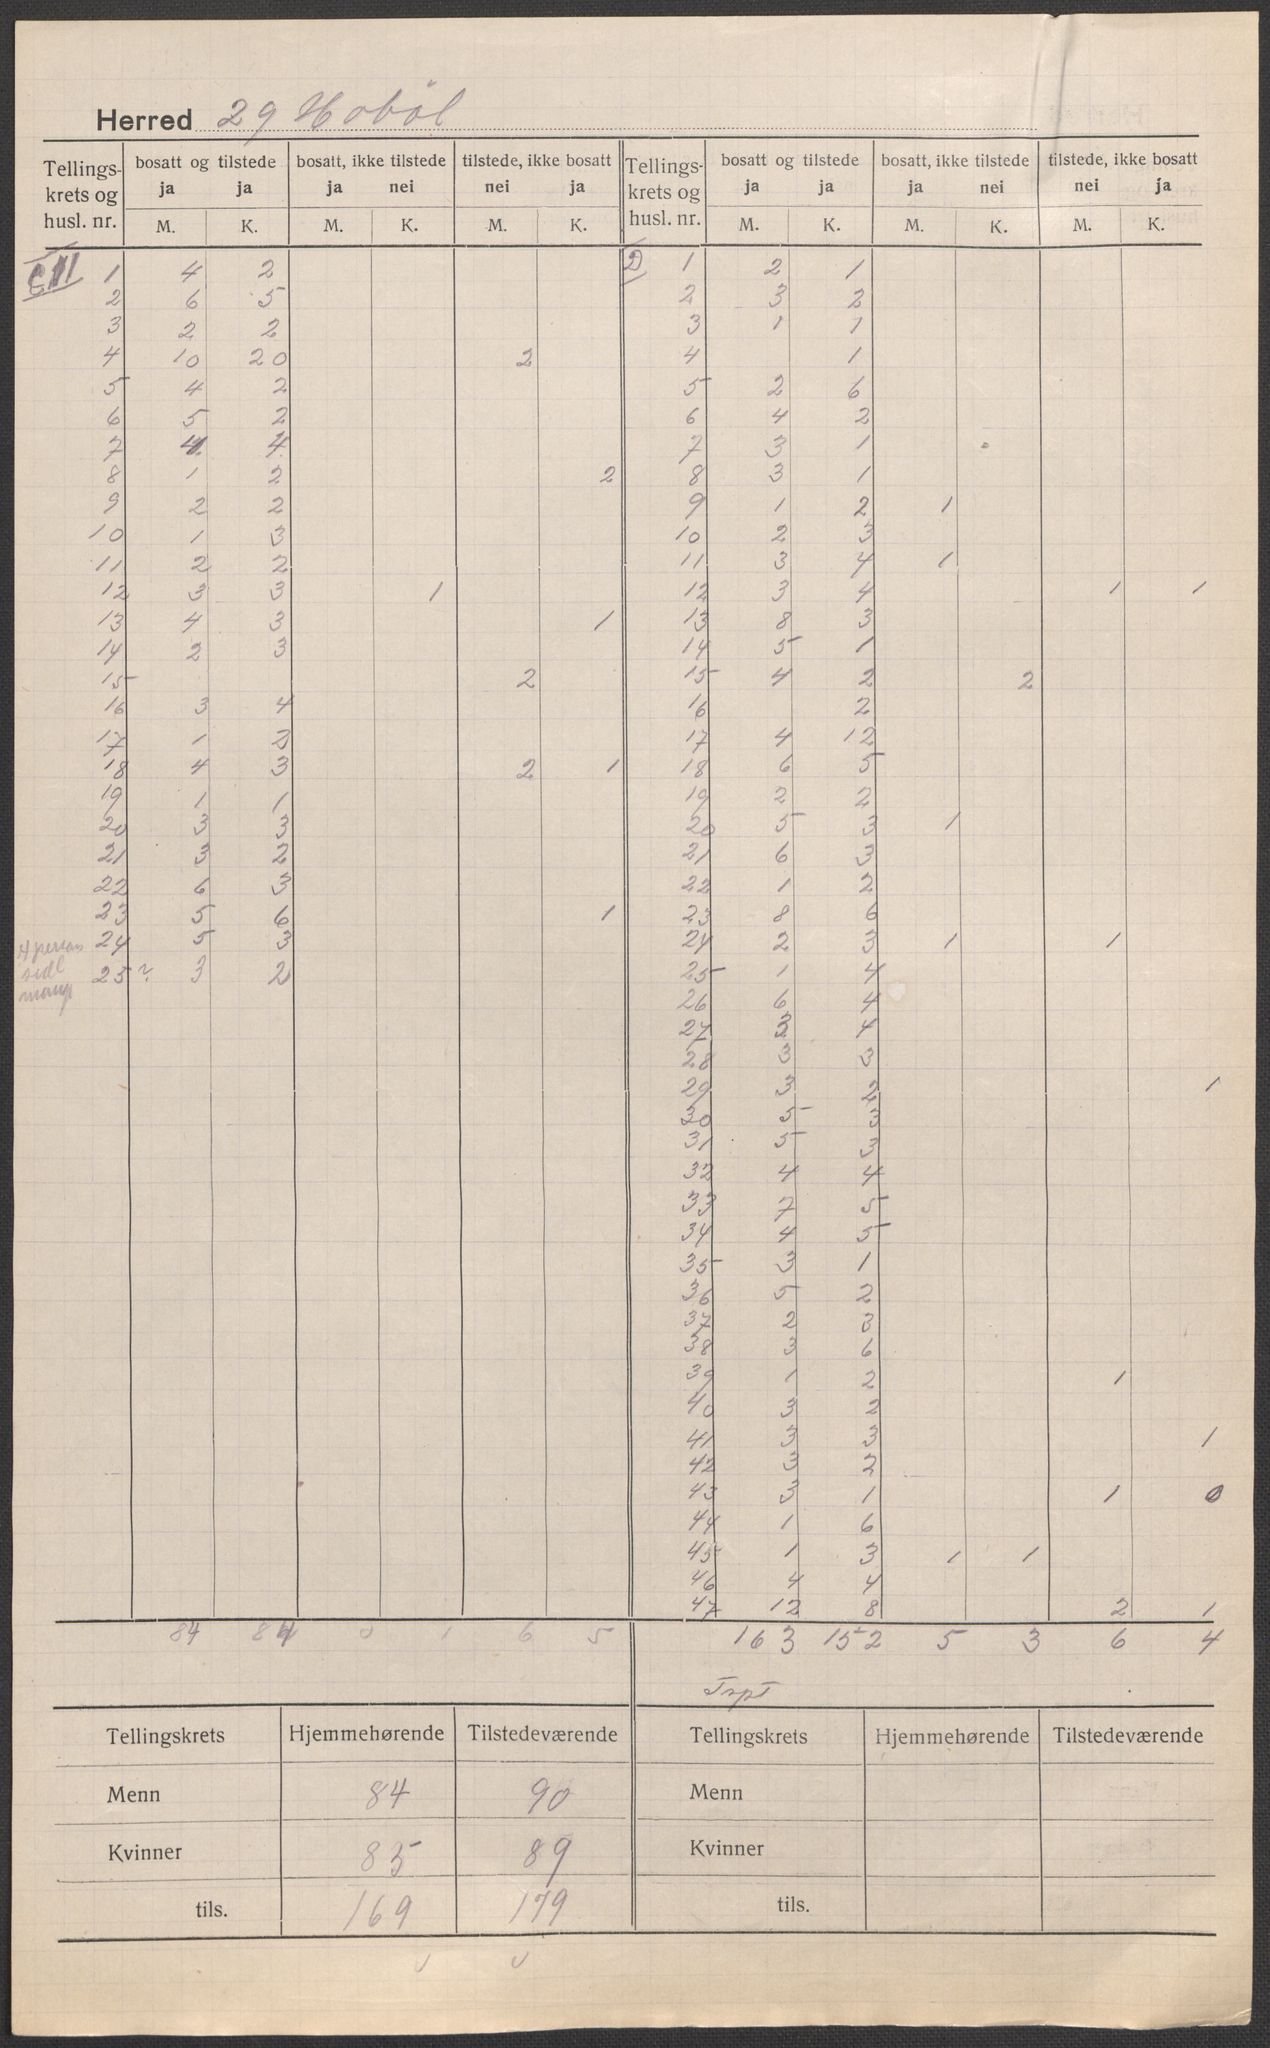 Herred 29 Hobøl
Tellings- krets og husl. nr. | bosatt og tilstede ja ja M. K. | bosatt, ikke tilstede ja nei M. K. | tilstede, ikke bosatt nei ja M. K. | Tellings- krets og husl. nr. | bosatt og tilstede ja ja M. K. | bosatt, ikke tilstede ja nei M. K. | tilstede, ikke bosatt nei ja M. K.
1 4 2 | 1 2 1
2 6 5 | 2 3 2
3 2 2 | 3 1 1
4 10 20 2 | 4 1
5 4 2 | 5 2 6
6 5 2 | 6 4 2
7 4 4 | 7 3 1
8 1 2 2 | 8 3 1
9 2 2 | 9 1 2 1
10 1 3 | 10 2 3
11 2 2 | 11 3 4 1
12 3 3 1 | 12 3 4 1 1
13 4 3 1 | 13 8 3
14 2 3 | 14 5 1
15 2 | 15 4 2 2
16 3 4 | 16 2
17 1 2 | 17 4 12
18 4 3 2 1 | 18 6 5
19 1 1 | 19 2 2
20 3 3 | 20 5 3 1
21 3 2 | 21 6 3
22 6 3 | 22 1 2
23 5 6 1 | 23 8 6
24 5 3 | 24 2 3 1 1
25 ? 3 2 | 25 1 4
26 6 4
27 2 4
28 3 3
29 3 2 1
30 5 3
31 5 3
32 4 4
33 7 5
34 4 5
35 3 1
36 5 2
37 2 3
38 3 6
39 1 2 1
40 3 2
41 3 3 1
42 3 2
43 3 1 1 0
44 1 6
45 1 3 1 1
46 4 4
47 12 8 2 1
84 84 0 1 6 5 | 163 152 5 3 6 4
Tellingskrets | Hjemmehørende | Tilstedeværende | Tellingskrets | Hjemmehørende | Tilstedeværende
Menn 84 90 | Menn
Kvinner 85 89 | Kvinner
tils. 169 179 | tils.